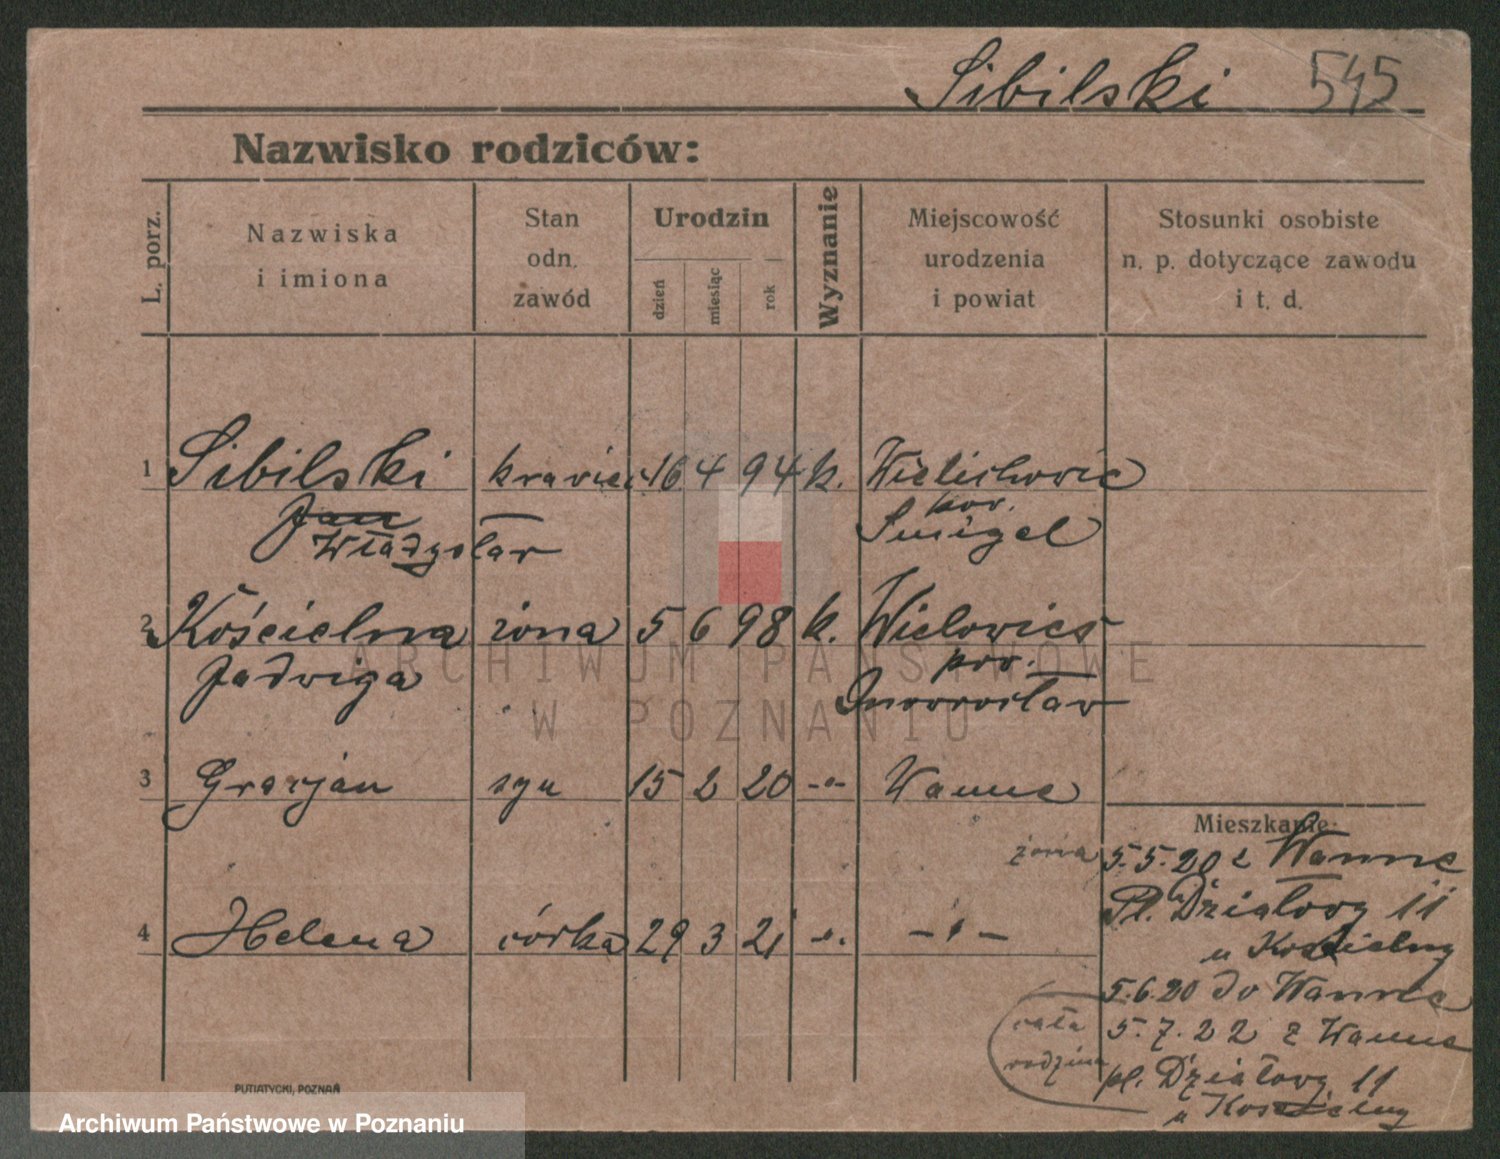 Sibilski 545
Nazwisko rodziców:
L. porz.
Nazwiska
i imiona
Stan
odn.
zawód
Urodzin
dzień
miesiąc
rok
Wyznanie
Miejscowość
urodzenia
i powiat
Stosunki osobiste
n. p. dotyczące zawodu
i t. d.
1 Sibilski krawiec 16 4 94 k. Wielichowie
pow.
Jan Śmigel
Władysław
2 Kościelna żona 5 6 98 k. Wielowies
Jadwiga pow.
Inowrocław
3 Gracjan syn 15 2 20 -"- Wanne
Mieszkanie:
żona 5.5.20 z Wanne
Pl. Działowy 11
4 Helena córka 29 3 21 -"- -"-
u Kościelny
5.6.20 do Wanne
cała 5.7.22 z Wanne
rodzina pl. Działowy 11
u Kościelny
PUTIATYCKI, POZNAŃ
ARCHIWUM PAŃSTWOWE
W POZNANIU
Archiwum Państwowe w Poznaniu